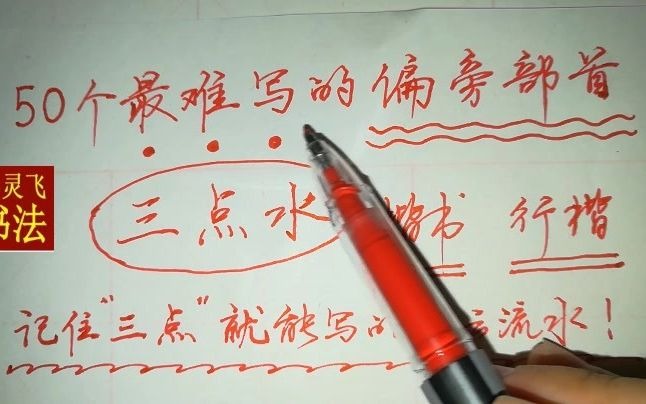 50个最难写的偏旁部首
灵飞
书法
三点水 楷书 行楷
记住“三点”就能写的 流水！